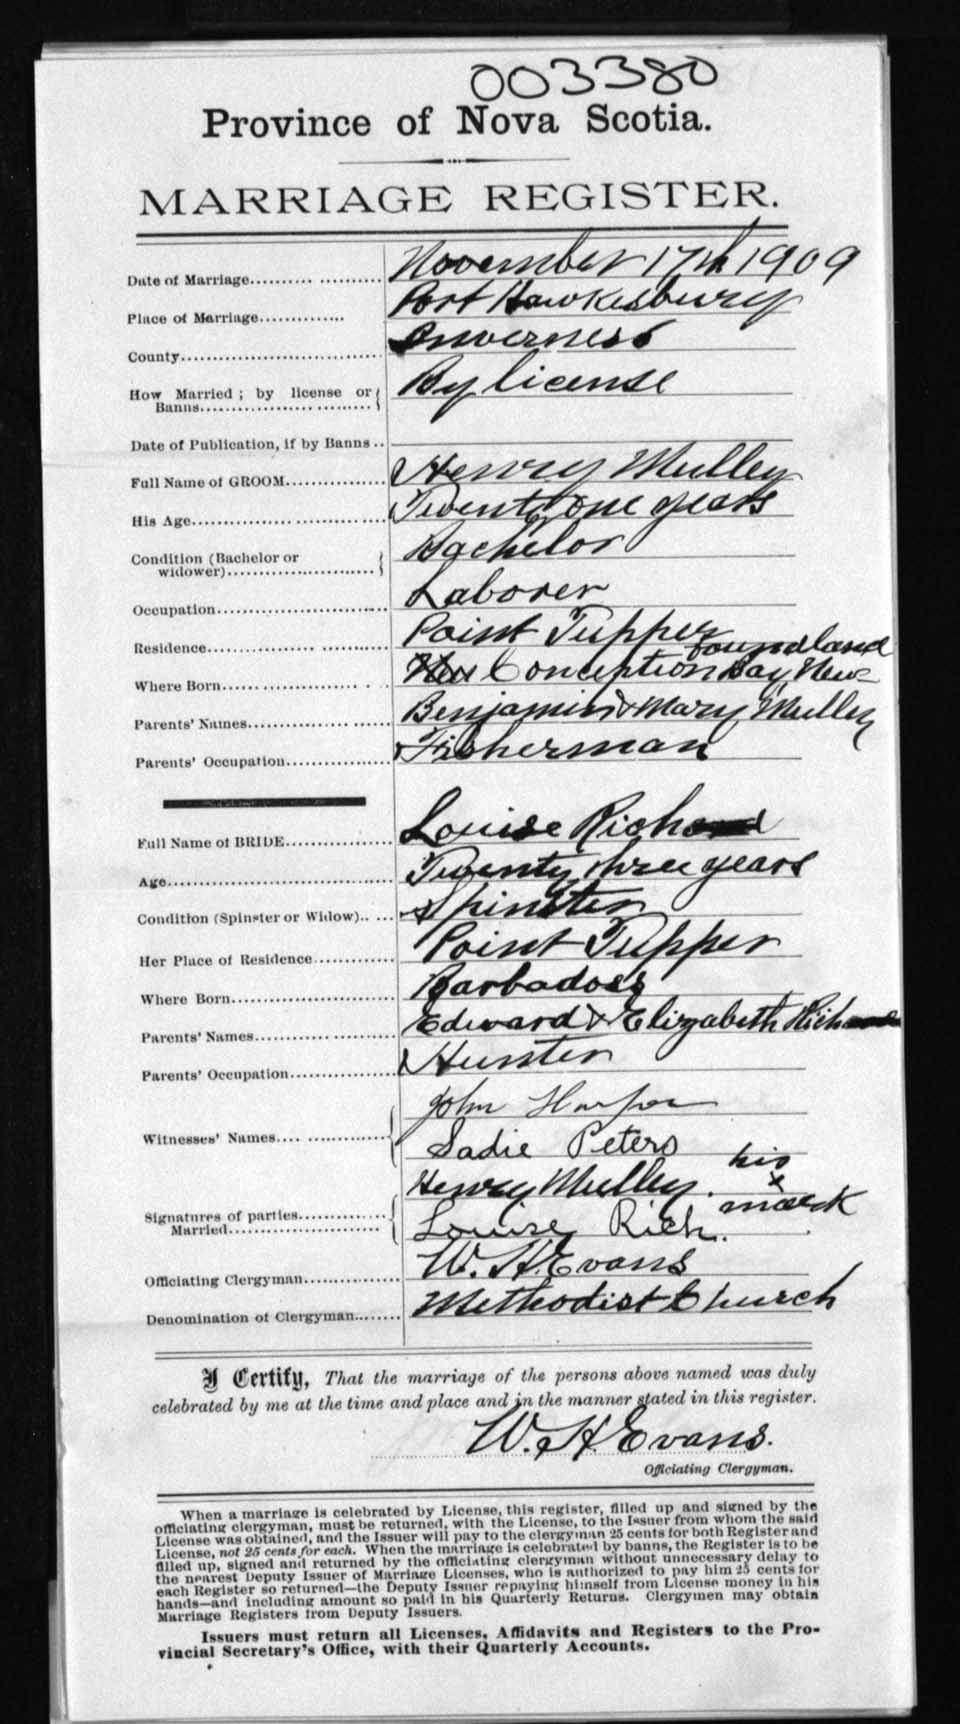 003380
Province of Nova Scotia.
MARRIAGE REGISTER.
Date of Marriage.................... November 17th 1909
Place of Marriage............. Port Hawkesbury
County............................. Inverness
How Married ; by license or Banns........................... By license
Date of Publication, if by Banns ..
Full Name of GROOM............... Henry Mulley
His Age............................. Twenty one years
Condition (Bachelor or widower)........................ Bachelor
Occupation.......................... Laborer
Residence........................... Point Tupper
Where Born....................... Conception Bay New foundland
Parents' Names..................... Benjamin & Mary Mulley
Parents' Occupation................ Fisherman
Full Name of BRIDE................. Louise Rich
Age.................................... Twenty three years
Condition (Spinster or Widow)..... Spinster
Her Place of Residence............. Point Tupper
Where Born......................... Barbados
Parents' Names..................... Edward & Elizabeth Rich
Parents' Occupation................ Hunter
Witnesses' Names.... ............ John Harper
Sadie Peters
Signatures of parties Married....................... Henry Mulley. his x mark
Louise Rich.
Officiating Clergyman.............. W. H. Evans
Denomination of Clergyman....... Methodist Church
I Certify, That the marriage of the persons above named was duly
celebrated by me at the time and place and in the manner stated in this register.
W. H. Evans.
Officiating Clergyman.
When a marriage is celebrated by License, this register, filled up and signed by the
officiating clergyman, must be returned, with the License, to the Issuer from whom the said
License was obtained, and the Issuer will pay to the clergyman 25 cents for both Register and
License, not 25 cents for each. When the marriage is celebrated by banns, the Register is to be
filled up, signed and returned by the officiating clergyman without unnecessary delay to
the nearest Deputy Issuer of Marriage Licenses, who is authorized to pay him 25 cents for
each Register so returned—the Deputy Issuer repaying himself from License money in his
hands—and including amount so paid in his Quarterly Returns. Clergymen may obtain
Marriage Registers from Deputy Issuers.
Issuers must return all Licenses, Affidavits and Registers to the Pro-
vincial Secretary's Office, with their Quarterly Accounts.